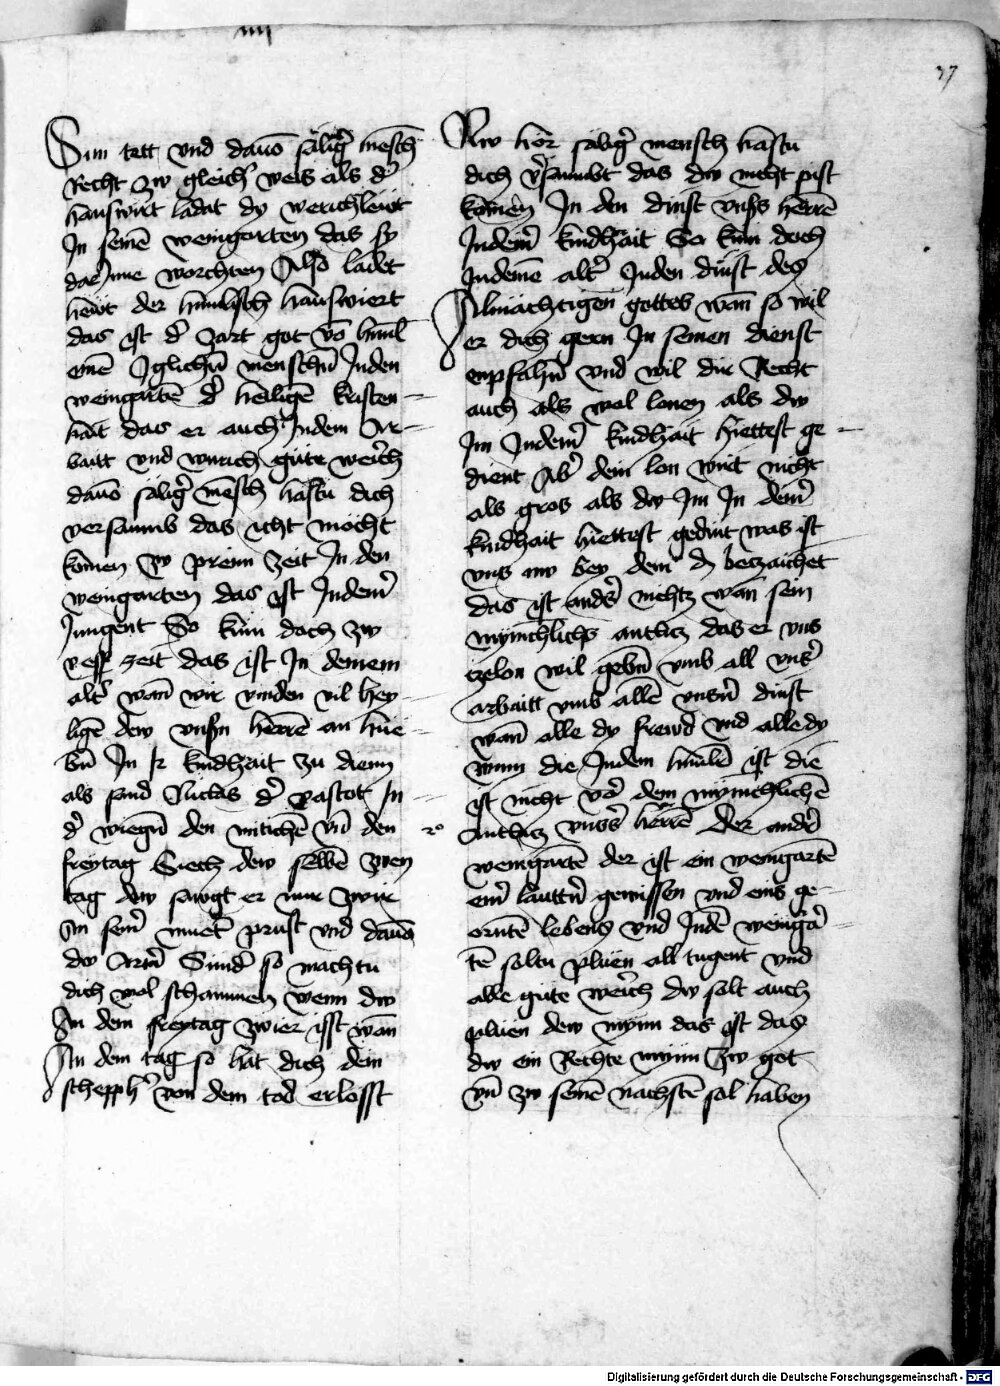 37
Sim tett vnd dauō sälig̃ mēsch
Recht zw gleich̃ weis als d̃
hauswirt ladat dy werichlewt
In seinē weingarten das sy
dar Inne worchten Also ladet
hewt der himlisch hauswiert
das ist d̃ zart got vō himl
einē Iglichñ menschñ Inden
weingartē d̃ heiligē kristen
hait das er auch Indem Ar
baitt vnd wurich gute werch̃
dauō sälig̃ mēsch hastu dich
versaumb das icht möcht
kōmen zw preim zeit In den
weingarten das ist Indein̄
Jungent So kum doch zw
vesp zeit das ist In deinem
alt̃ wañ wir vinden vil hey
ligē dew vnsm herrē an hue
bñ In ir kindhait zu dienn
als sand Niclas d̃ vastot In
d̃ wiegñ den mitichē vñ den
freytag Siech dew selbē zwen
tag dw sawgt er nur zwir
An sein̄ muet̃ prust vnd dauō
dw Arm̃ Sünd̃ so machtu
dich wol schammen wenn dw
An dem freytag zwier isst wan̄
An dem tag so hat dich dein
scheppf̃ von dem tod erlosst
Nw hör sälig̃ mensch hastu
dich ṽsaumbt das dw nicht pist
kömen In den dinst vnss herrē
Indein̄ kindhait So kum doch
Indeinē alt̃ Inden dinst des
Almächtigen gottes wañ so wil
er dich gern In seinen dienst
enpfahñ vnd wil dir Recht
auch als wol lonen als dw
Im Indein̄ kindhait hiettest ge
dient Ab̃ dein lon wirt nicht
als gros als dw Im In dein̄
kindhait hiettest gedint was ist
vns nw bey dem d̃ betzaichet
das ist and̃s nichtz wan sein
mynichlichs antlitz das er vns
tzelon wil gebñ vmb all vns̃
arbaitt vmb allē vnsñ dinst
wañ alle dy frewd vnd alle dy
wunn die Indem himlē ist die
ist nicht vō dem mynichlichē
Antlitz vnss̃ herrē Der and̃
weingartē der ist ein weingartē
ein̄ lautt̃n gewissen vnd eins ge
orntē lebens vnd Indē weingā
tē soltu pluen all tugent vnd
alle gute werch dw solt auch
pluen dew mynn das ist das
dw ein Rechte mynn zw got
vñ zw seinē nachstē sol haben
Digitalisierung gefördert durch die Deutsche Forschungsgemeinschaft - DFG